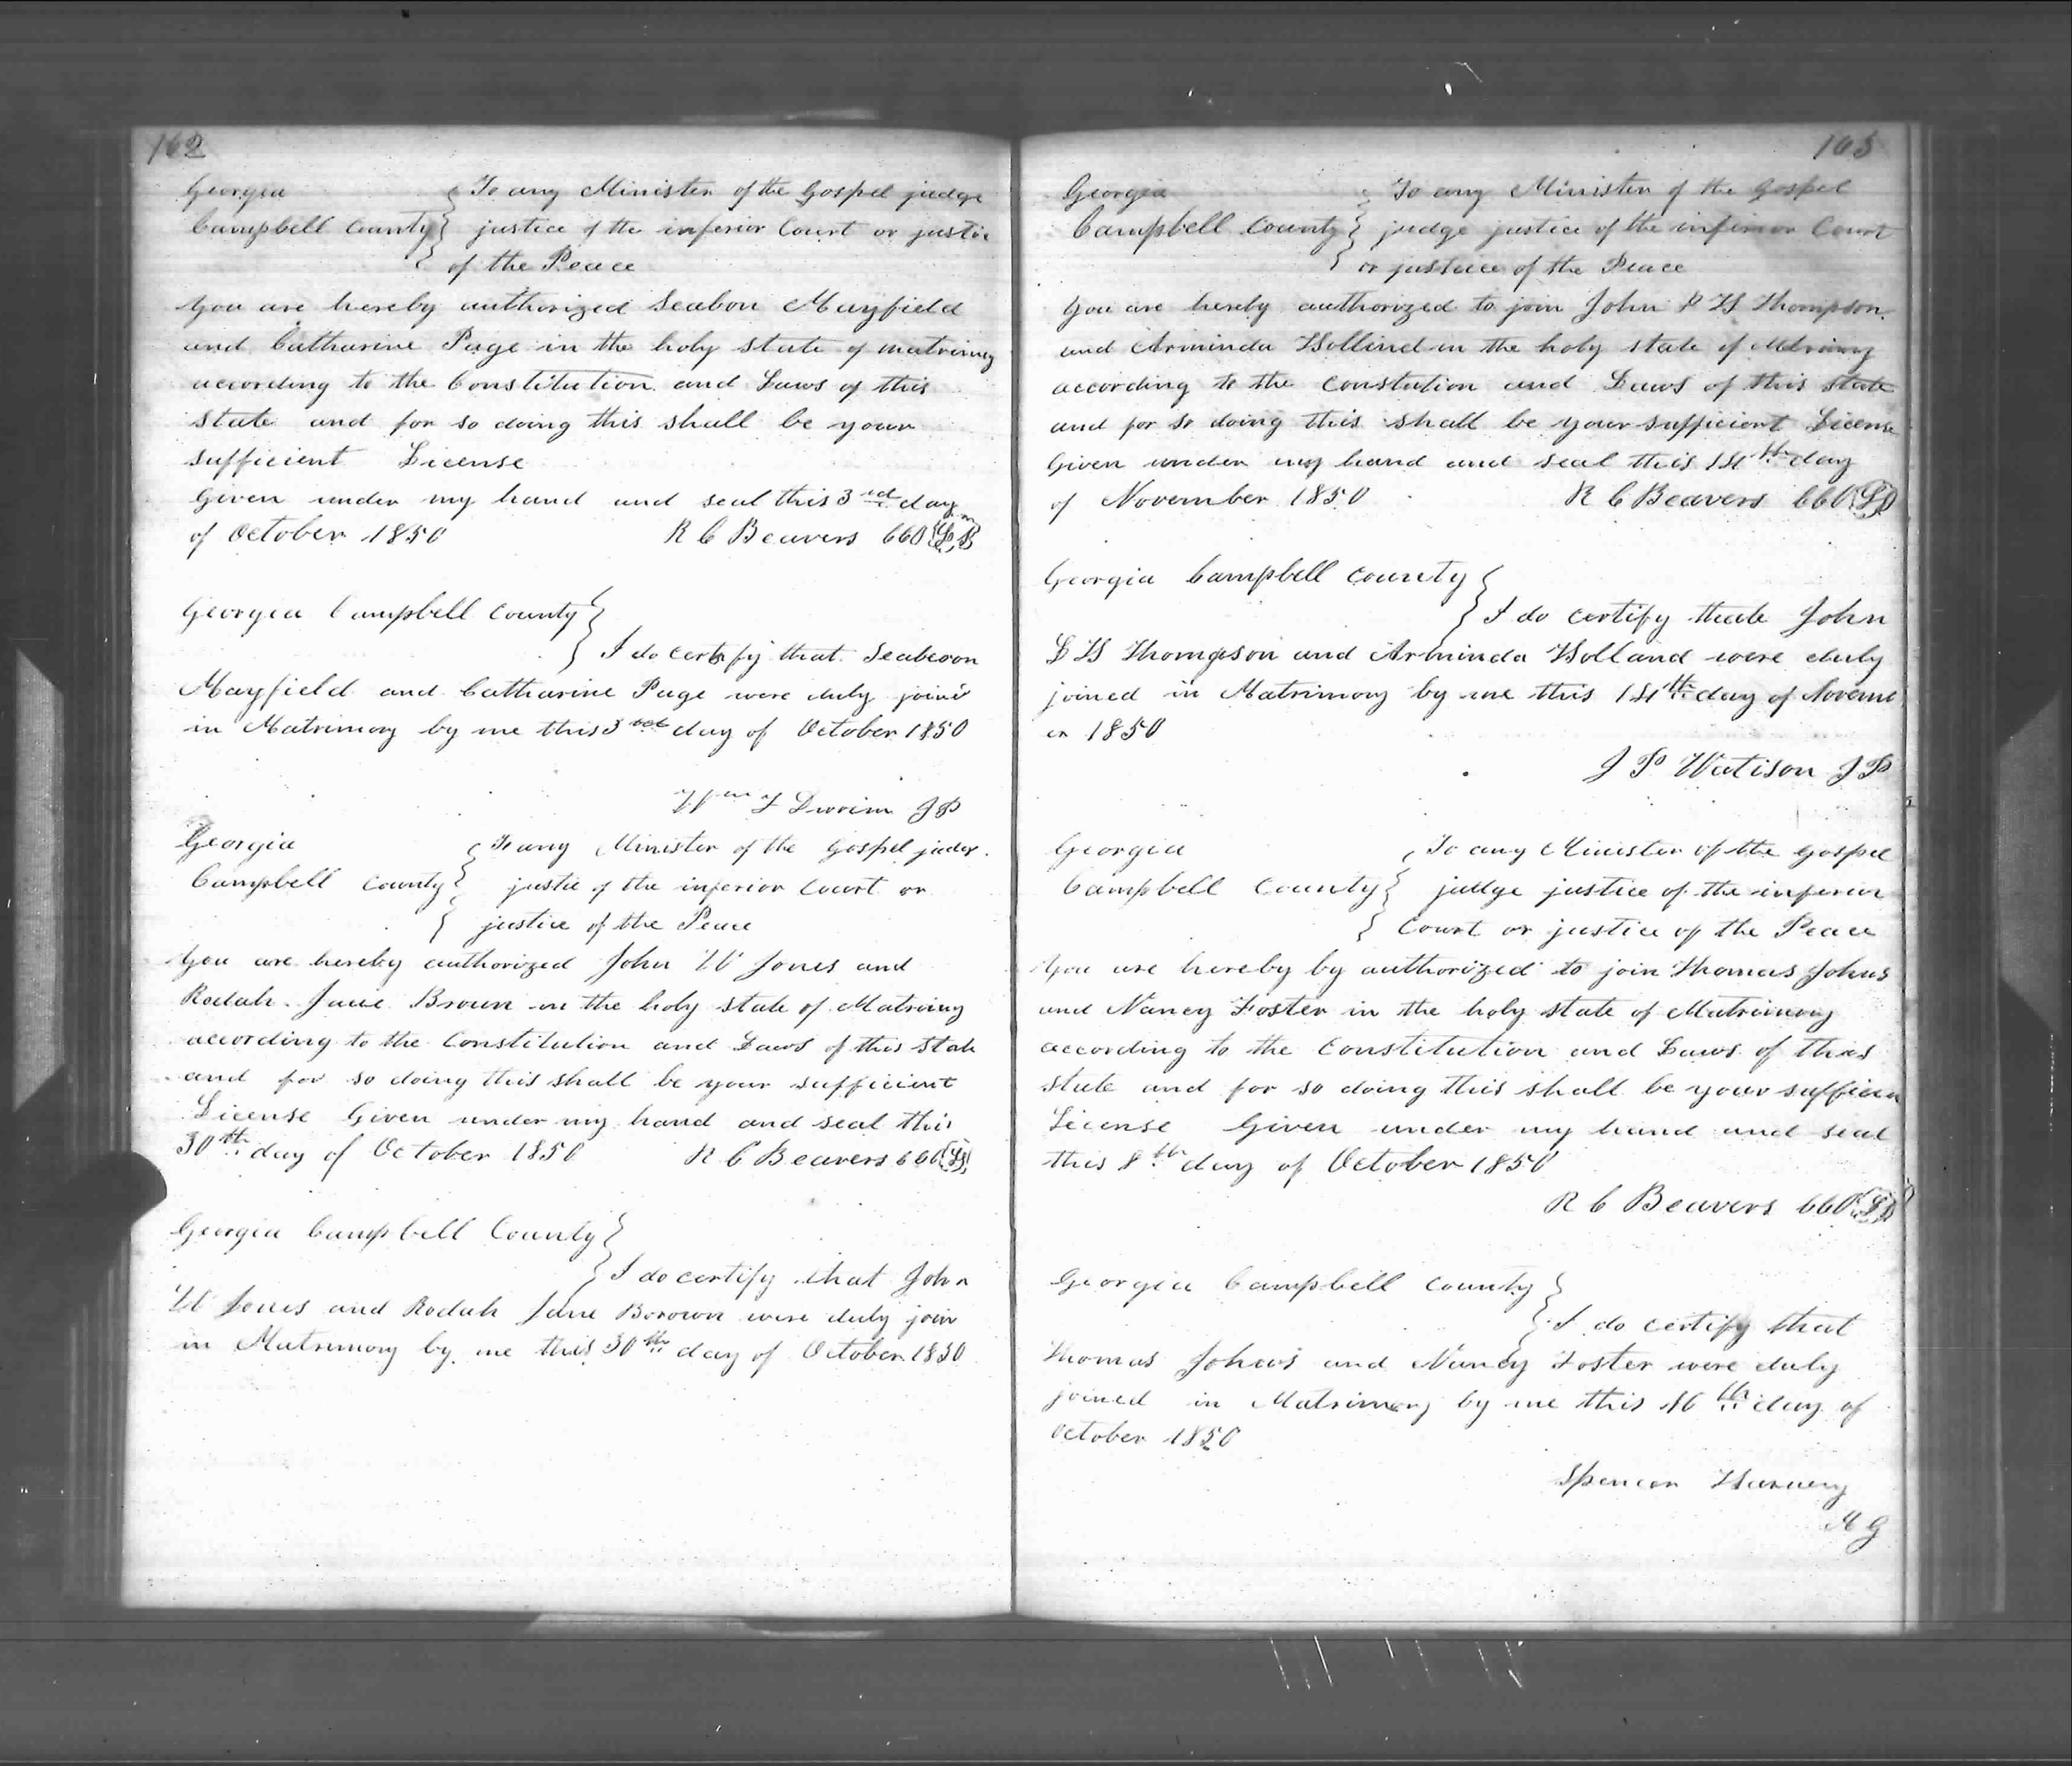 162
Georgia { To any Minister of the Gospel judge
Campbell County { justice of the inferior Court or justic
{ of the Peace
You are hereby authorized Seabon Mayfield
and Catharine Page in the holy state of matrimony
according to the Constitution and Laws of this
state and for so doing this shall be your
sufficient License
Given under my hand and seal this 3rd day
of October 1850 R C Beavers CCO LS
Georgia Campbell County }
} I do certify that Seaberon
Mayfield and Catharine Page were duly joind
in Matrimony by me this 3 day of October 1850
Wm J P
Georgia { To any Minister of the Gospel judge
Campbell County { justie of the inferior Court or
{ justice of the Peace
You are hereby authorized John W Jones and
Rodah Jane Brown in the holy state of Matrimony
according to the Constitution and Laws of this State
and for so doing this shall be your sufficient
License Given under my hand and seal this
30th day of October 1850 R C Beavers CCO LS
Georgia Campbell County }
} I do certify that John
W Jones and Rodah Jane Borown were duly join
in Matrimony by me this 30th day of October 1850
163
Georgia { To any Minister of the Gospel
Campbell County { judge justice of the inferior Court
{ or justice of the Peace
You are hereby authorized to join John P H Thompson
and Arminda Hollind in the holy state of Matrimony
according to the Constution and Laws of this state
and for so doing this shall be your sufficient License
Given under my hand and seal this 14th day
of November 1850 R C Beavers CCO LS
Georgia Campbell County }
} I do certify that John
L H Thompson and Arminda Holland were duly
joined in Matrimony by me this 14th day of Novem
er 1850
J P Watison J P
Georgia { To any Minister of the Gospel
Campbell County { judge justice of the inferior
{ Court or justice of the Peace
You are hereby by authorized to join Thomas Johns
and Nancy Foster in the holy state of Matrimony
according to the Constitution and Laws of this
state and for so doing this shall be your sufficien
License Given under my hand and seal
this 8th day of October 1850
R C Beavers CCO LS
Georgia Campbell County }
} I do certify that
Thomas Johns and Nancy Foster were duly
joined in Matrimony by me this 16th day of
October 1850
Spencer Harvey
M G